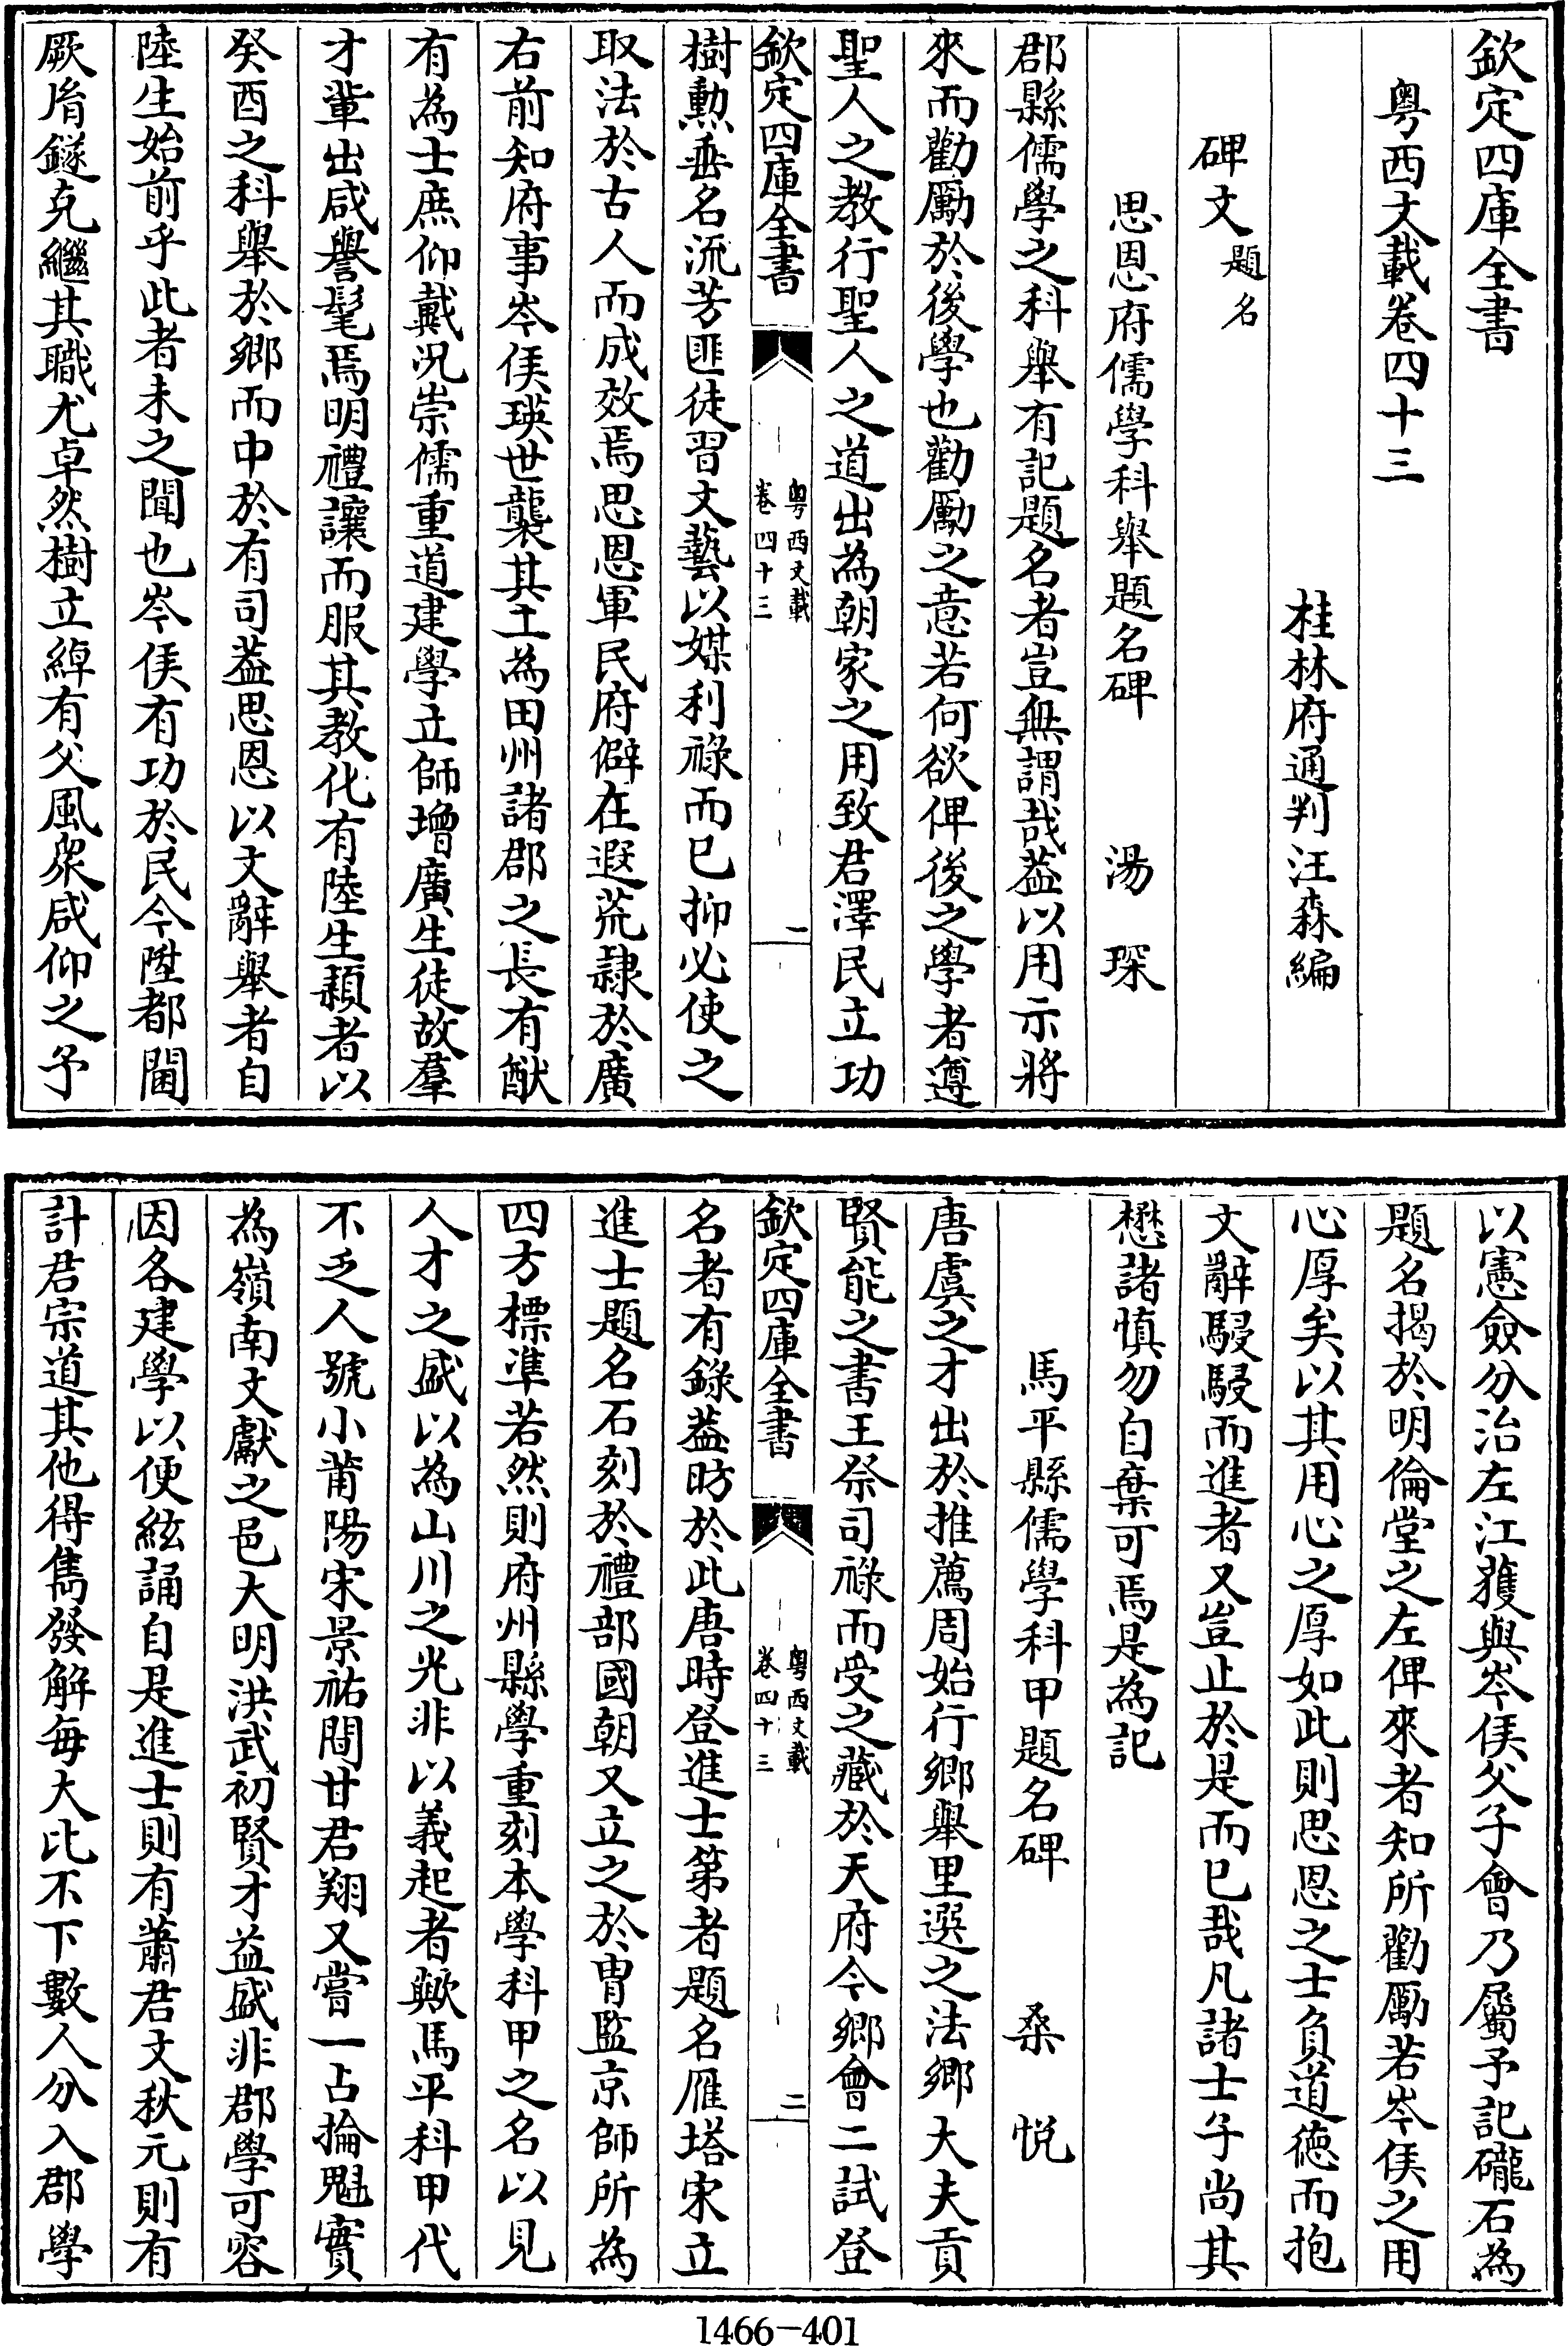 欽定四庫全書
粤西文載卷四十三
桂林府通判汪森編
碑文題名
思恩府儒學科舉題名碑　湯　琛
郡縣儒學之科舉有記題名者豈無謂哉葢以用示將
來而勸勵於後學也勸勵之意若何欲俾後之學者遵
聖人之教行聖人之道出為朝家之用致君澤民立功
欽定四庫全書　粤西文載　卷四十三　一
樹勲垂名流芳匪徒習文藝以媒利祿而已抑必使之
取法於古人而成效焉思恩軍民府僻在遐荒隷於廣
右前知府事岑侯瑛世襲其土為田州諸郡之長有猷
有為士庶仰戴況崇儒重道建學立師增廣生徒故羣
才輩出咸譽髦焉明禮讓而服其教化有陸生頴者以
癸酉之科舉於鄉而中於有司葢思恩以文辭舉者自
陸生始前乎此者未之聞也岑侯有功於民今陞都閫
厥胄鐩克繼其職尤卓然樹立綽有父風衆咸仰之予
以憲僉分治左江獲與岑侯父子會乃屬予記礲石為
題名揭於明倫堂之左俾來者知所勸勵若岑侯之用
心厚矣以其用心之厚如此則思恩之士負道徳而抱
文辭駸駸而進者又豈止於是而已哉凡諸士子尚其
懋諸慎勿自棄可焉是為記
馬平縣儒學科甲題名碑　桑　悅
唐虞之才出於推薦周始行鄉舉里選之法鄉大夫貢
賢能之書王祭司祿而受之藏於天府今鄉會二試登
欽定四庫全書　粤西文載　卷四十三　二
名者有錄葢昉於此唐時登進士第者題名雁塔宋立
進士題名石刻於禮部國朝又立之於胄監京師所為
四方標凖若然則府州縣學重刻本學科甲之名以見
人才之盛以為山川之光非以義起者歟馬平科甲代
不乏人號小莆陽宋景祐間甘君翔又嘗一占掄魁實
為嶺南文獻之邑大明洪武初賢才益盛非郡學可容
因各建學以便絃誦自是進士則有蕭君文秋元則有
計君宗道其他得雋發解每大比不下數人分入郡學
1466-401